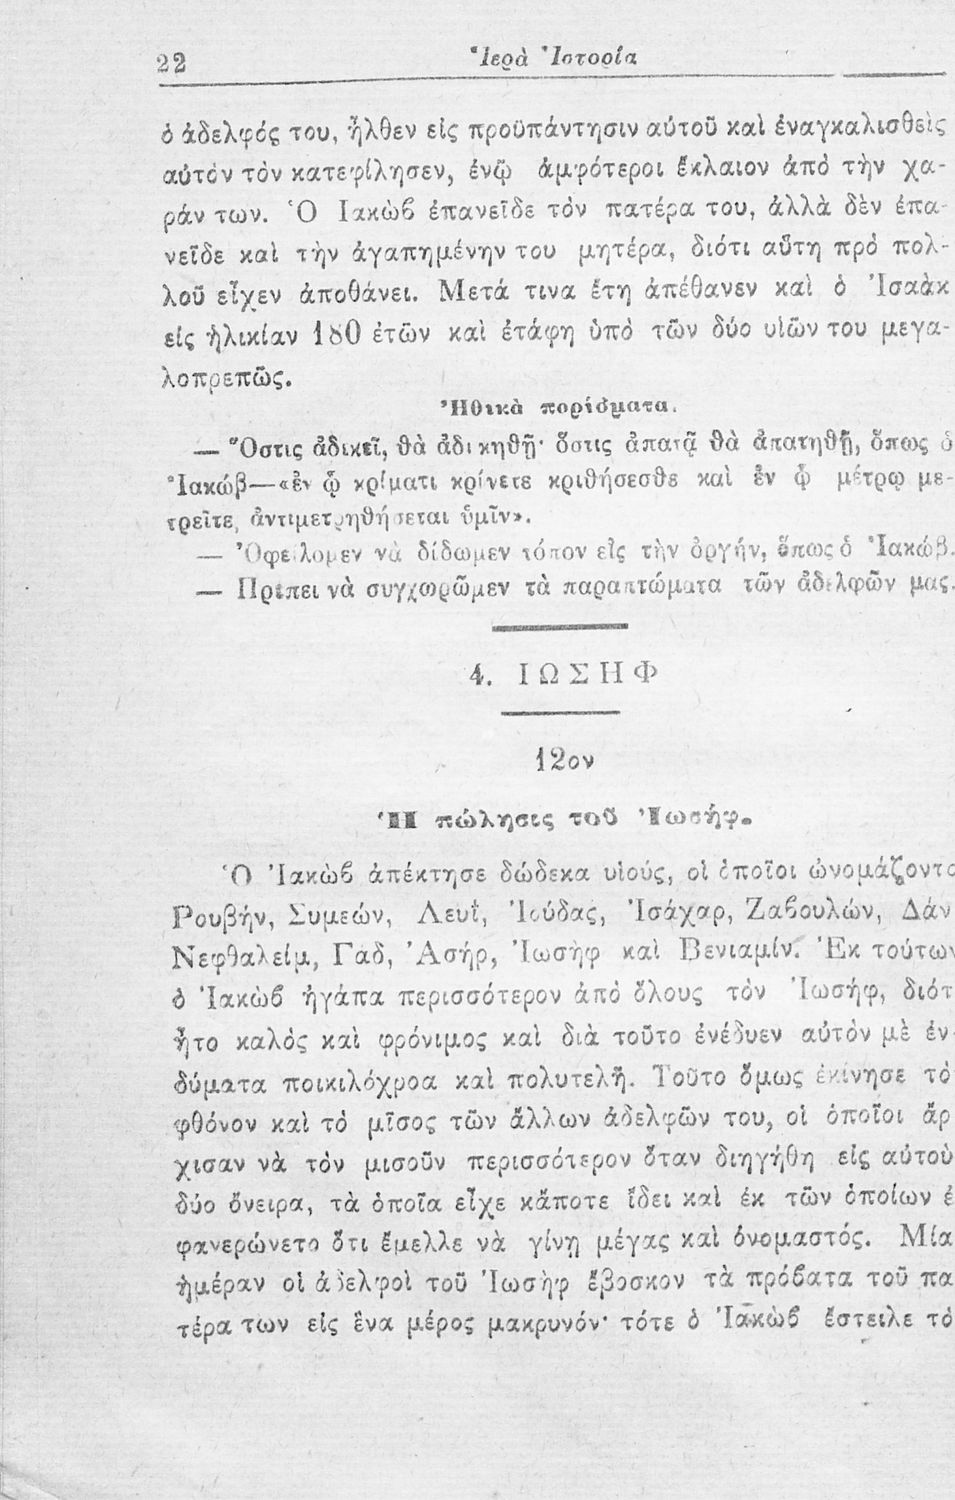 22
Ἱερὰ Ἱστορία
ὁ ἀδελφός του, ἦλθεν εἰς προϋπάντησιν αὐτοῦ καὶ ἐναγκαλισθεὶς
αὐτὸν τὸν κατεφίλησεν, ἐνῷ ἀμφότεροι ἔκλαιον ἀπὸ τὴν χα-
ράν των. Ὁ Ἰακὼβ ἐπανεῖδε τὸν πατέρα του, ἀλλὰ δὲν ἐπα-
νεῖδε καὶ τὴν ἀγαπημένην του μητέρα, διότι αὕτη πρὸ πολ-
λοῦ εἶχεν ἀποθάνει. Μετά τινα ἔτη ἀπέθανεν καὶ ὁ Ἰσαὰκ
εἰς ἡλικίαν 180 ἐτῶν καὶ ἐτάφη ὑπὸ τῶν δύο υἱῶν του μεγα-
λοπρεπῶς.
Ἠθικὰ πορίσματα.
— Ὅστις ἀδικεῖ, θὰ ἀδικηθῇ· ὅστις ἀπατᾷ θὰ ἀπατηθῇ, ὅπως ὁ
Ἰακώβ—«ἐν ᾧ κρίματι κρίνετε κριθήσεσθε καὶ ἐν ᾧ μέτρῳ με-
τρεῖτε, ἀντιμετρηθήσεται ὑμῖν».
— Ὀφείλομεν νὰ δίδωμεν τόπον εἰς τὴν ὀργήν, ὅπως ὁ Ἰακώβ.
— Πρέπει νὰ συγχωρῶμεν τὰ παραπτώματα τῶν ἀδελφῶν μας.
4. ΙΩΣΗΦ
12ον
Ἡ πώλησις τοῦ Ἰωσήφ.
Ὁ Ἰακὼβ ἀπέκτησε δώδεκα υἱούς, οἱ ὁποῖοι ὠνομάζοντο
Ρουβήν, Συμεών, Λευΐ, Ἰούδας, Ἰσάχαρ, Ζαβουλών, Δάν
Νεφθαλείμ, Γάδ, Ἀσήρ, Ἰωσὴφ καὶ Βενιαμίν. Ἐκ τούτων
ὁ Ἰακὼβ ἠγάπα περισσότερον ἀπὸ ὅλους τὸν Ἰωσήφ, διότ
ἦτο καλὸς καὶ φρόνιμος καὶ διὰ τοῦτο ἐνέδυεν αὐτὸν μὲ ἐν
δύματα ποικιλόχροα καὶ πολυτελῆ. Τοῦτο ὅμως ἐκίνησε τὸ
φθόνον καὶ τὸ μῖσος τῶν ἄλλων ἀδελφῶν του, οἱ ὁποῖοι ἄρ
χισαν νὰ τὸν μισοῦν περισσότερον ὅταν διηγήθη εἰς αὐτοὺ
δύο ὄνειρα, τὰ ὁποῖα εἶχε κἄποτε ἴδει καὶ ἐκ τῶν ὁποίων ἐ
φανερώνετο ὅτι ἔμελλε νὰ γίνῃ μέγας καὶ ὀνομαστός. Μία
ἡμέραν οἱ ἀδελφοὶ τοῦ Ἰωσὴφ ἔβοσκον τὰ πρόβατα τοῦ πα
τέρα των εἰς ἓνα μέρος μακρυνόν· τότε ὁ Ἰακὼβ ἔστειλε τὸ